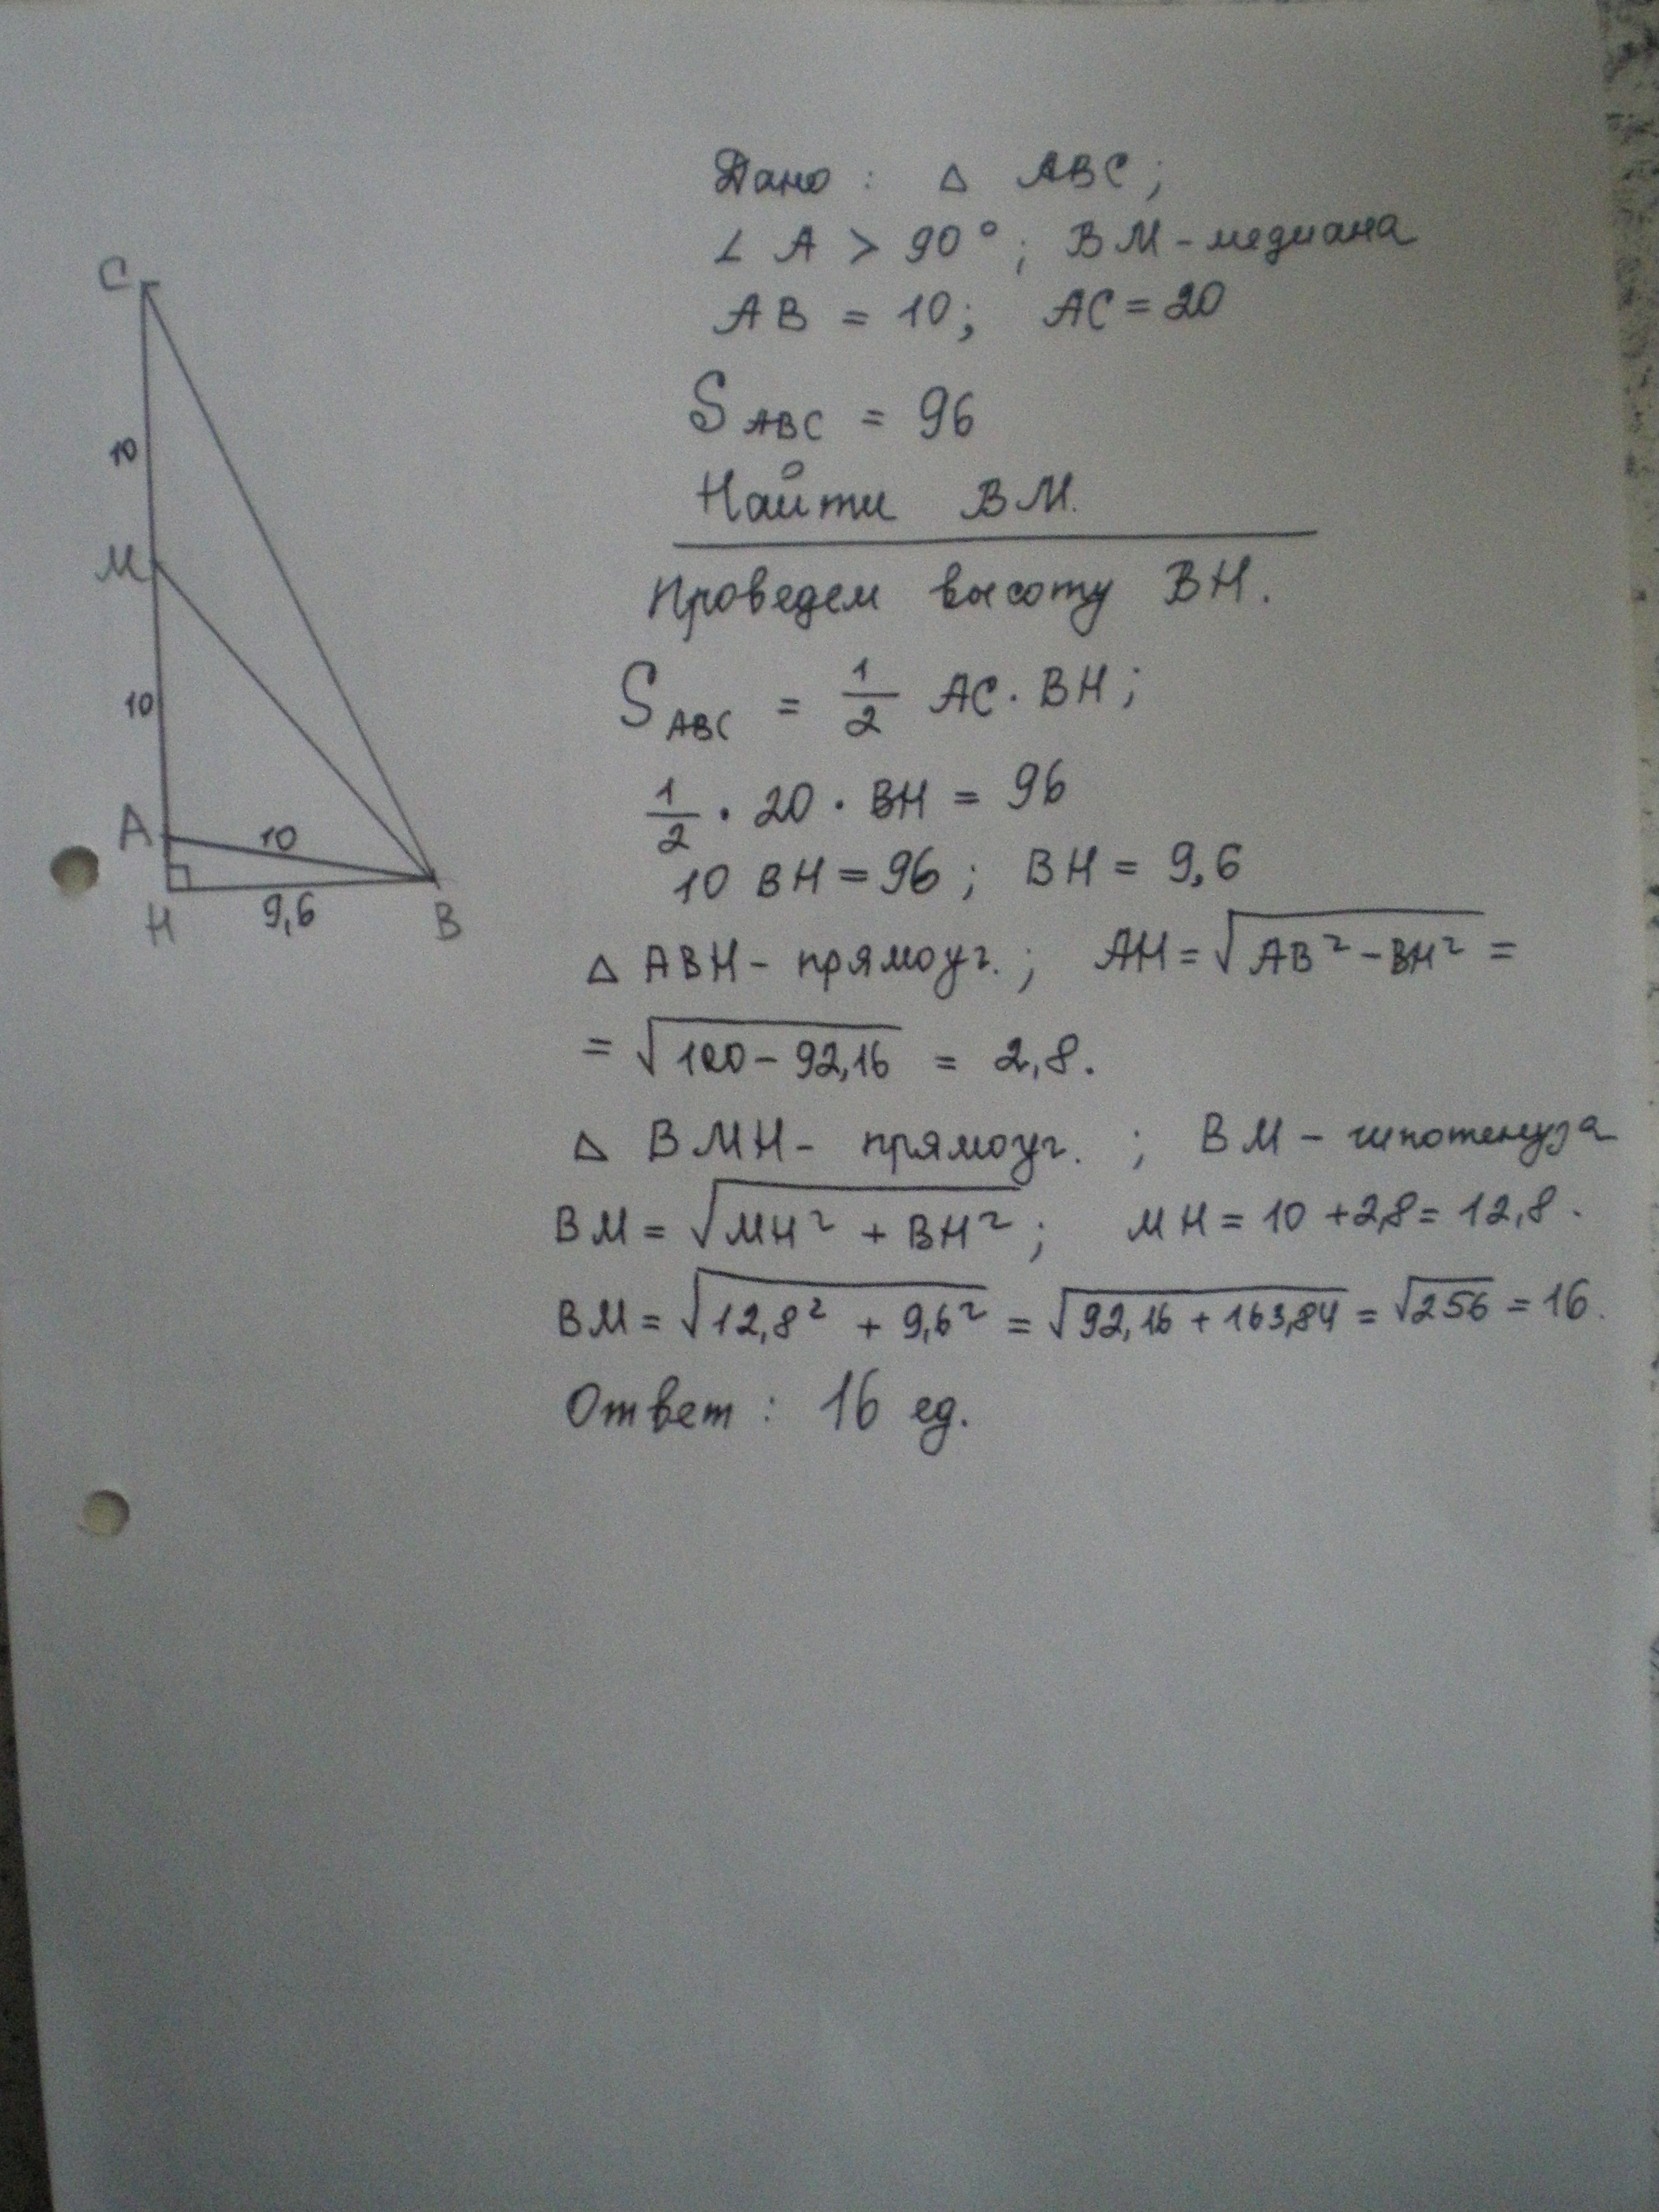 Дано: △ ABC;
∠ A > 90°; BM - медиана
AB = 10; AC = 20
S ABC = 96
Найти BM.
Проведем высоту BH.
S ABC = 1/2 AC · BH;
1/2 · 20 · BH = 96
10 BH = 96; BH = 9,6
△ ABH - прямоуг.; AH = √(AB² - BH²) =
= √(100 - 92,16) = 2,8.
△ BMH - прямоуг.; BM - гипотенуза
BM = √(MH² + BH²); MH = 10 + 2,8 = 12,8.
BM = √(12,8² + 9,6²) = √(92,16 + 163,84) = √256 = 16.
Ответ: 16 ед.
C
10
M
10
A
10
H
9,6
B